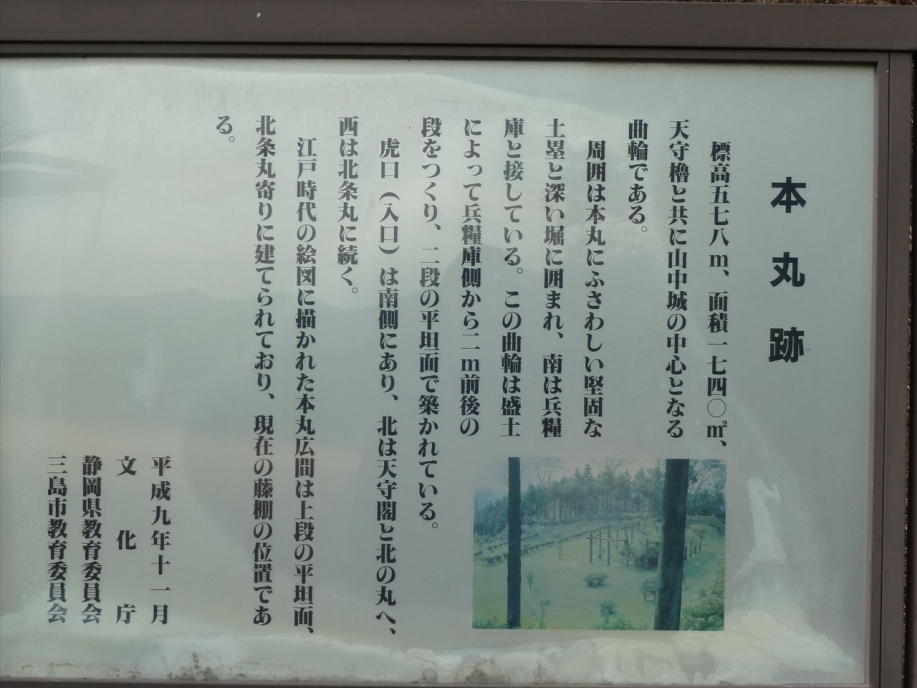 本丸跡
標高五七八m、面積一七四〇㎡、
天守櫓と共に山中城の中心となる
曲輪である。
周囲は本丸にふさわしい堅固な
土塁と深い堀に囲まれ、南は兵糧
庫と接している。この曲輪は盛土
によって兵糧庫側から二m前後の
段をつくり、二段の平坦面で築かれている。
虎口（入口）は南側にあり、北は天守閣と北の丸へ、
西は北条丸に続く。
江戸時代の絵図に描かれた本丸広間は上段の平坦面、
北条丸寄りに建てられており、現在の藤棚の位置であ
る。
平成九年十一月
文化庁
静岡県教育委員会
三島市教育委員会